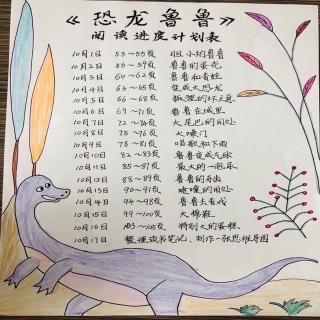 《恐龙鲁鲁》
阅读进度计划表
10月1日 53—55页 胆小的鲁鲁
10月2日 56—59页 鲁鲁的蛋壳
10月3日 60—62页 鲁鲁和青蛙
10月4日 63—65页 变成大恐龙
10月5日 66—68页 狐狸的坏主意
10月6日 69—71页 鲁鲁在城里
10月7日 72—74页 大尾巴的用处
10月8日 75—76页 大嗓门
10月9日 78—81页 唱歌和下雨
10月10日 82—83页 鲁鲁变成气球
10月11日 85—87页 最大的一把伞
10月12日 88—89页 鲁鲁的牙齿
10月13日 90—91页 喷嚏的用处
10月14日 94—98页 鲁鲁去看戏
10月15日 99—100页 大棉鞋
10月16日 103—105页 特别大的蛋糕
10月17日 整理读书笔记,制作一张思维导图